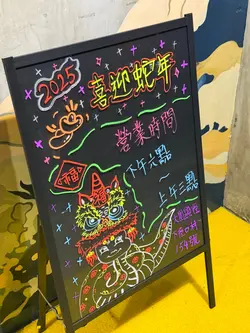 2025
喜迎蛇年
營業時間
下午六點
～
上午三點
福